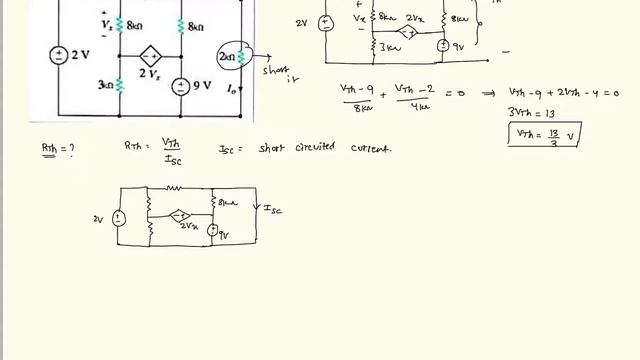 +
Vx
-
8kΩ
8kΩ
2 V
- +
2 Vx
3kΩ
9 V
2kΩ
Io
short
it
2V
+
Vx
-
8kΩ
2Vx
- +
8kΩ
3kΩ
9V
-
VTh-9/8kΩ + VTh-2/4kΩ = 0 ⇒ VTh-9 + 2VTh-4=0
3VTh = 13
VTh = 13/3 V
RTh = ? RTh = VTh/ISC ISC = short circuited current.
2V
8kΩ
- +
2Vx
9V
ISC